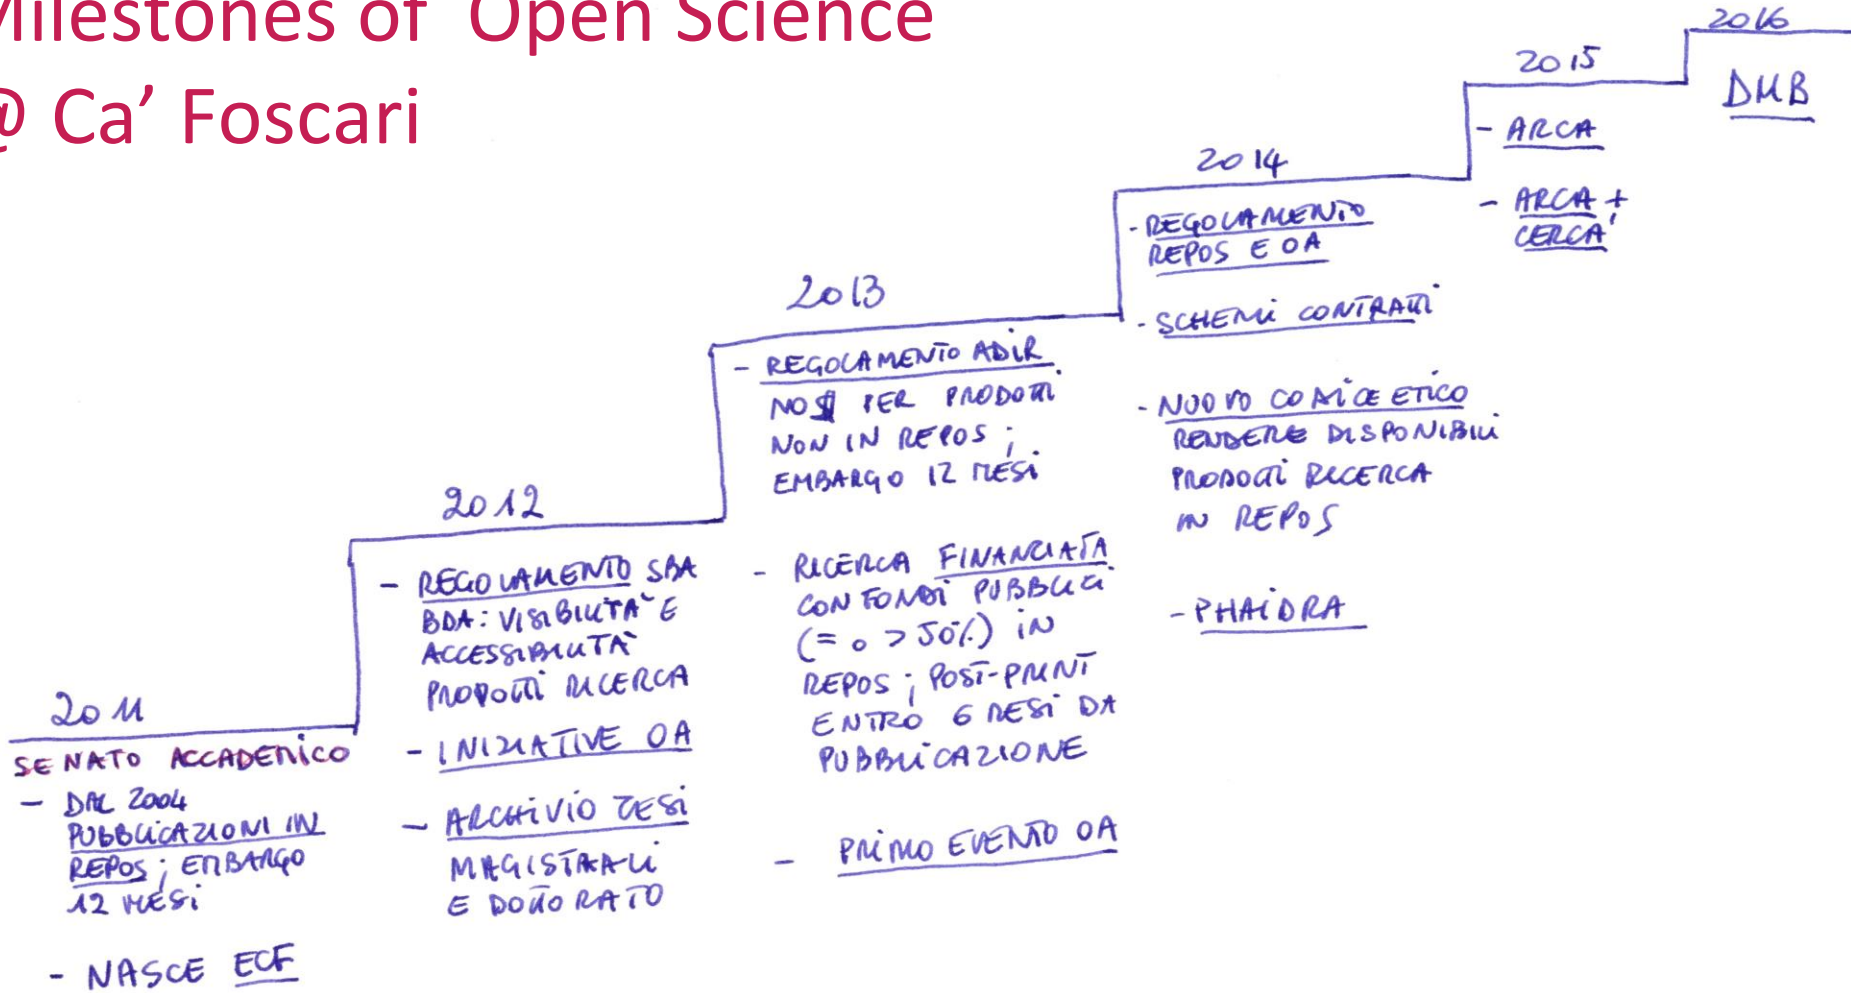 Milestones of Open Science
@ Ca' Foscari
2011
SENATO ACCADEMICO
- DAL 2004
PUBBLICAZIONI IN
REPOS; EMBARGO
12 MESI
- NASCE ECF
2012
- REGOLAMENTO SBA
BDA: VISIBILITÀ E
ACCESSIBILITÀ
PRODOTTI RICERCA
- INIZIATIVE OA
- ARCHIVIO TESI
MAGISTRALI
E DOTTORATO
2013
- REGOLAMENTO ADIR
NO $ PER PRODOTTI
NON IN REPOS;
EMBARGO 12 MESI
- RICERCA FINANZIATA
CON FONDI PUBBLICI
(= o > 50%) IN
REPOS; POST-PRINT
ENTRO 6 MESI DA
PUBBLICAZIONE
- PRIMO EVENTO OA
2014
- REGOLAMENTO
REPOS E OA
- SCHEMI CONTRATTI
- NUOVO CODICE ETICO
RENDERE DISPONIBILI
PRODOTTI RICERCA
IN REPOS
- PHAIDRA
2015
- ARCA
- ARCA +
CERCA'
2016
DMB